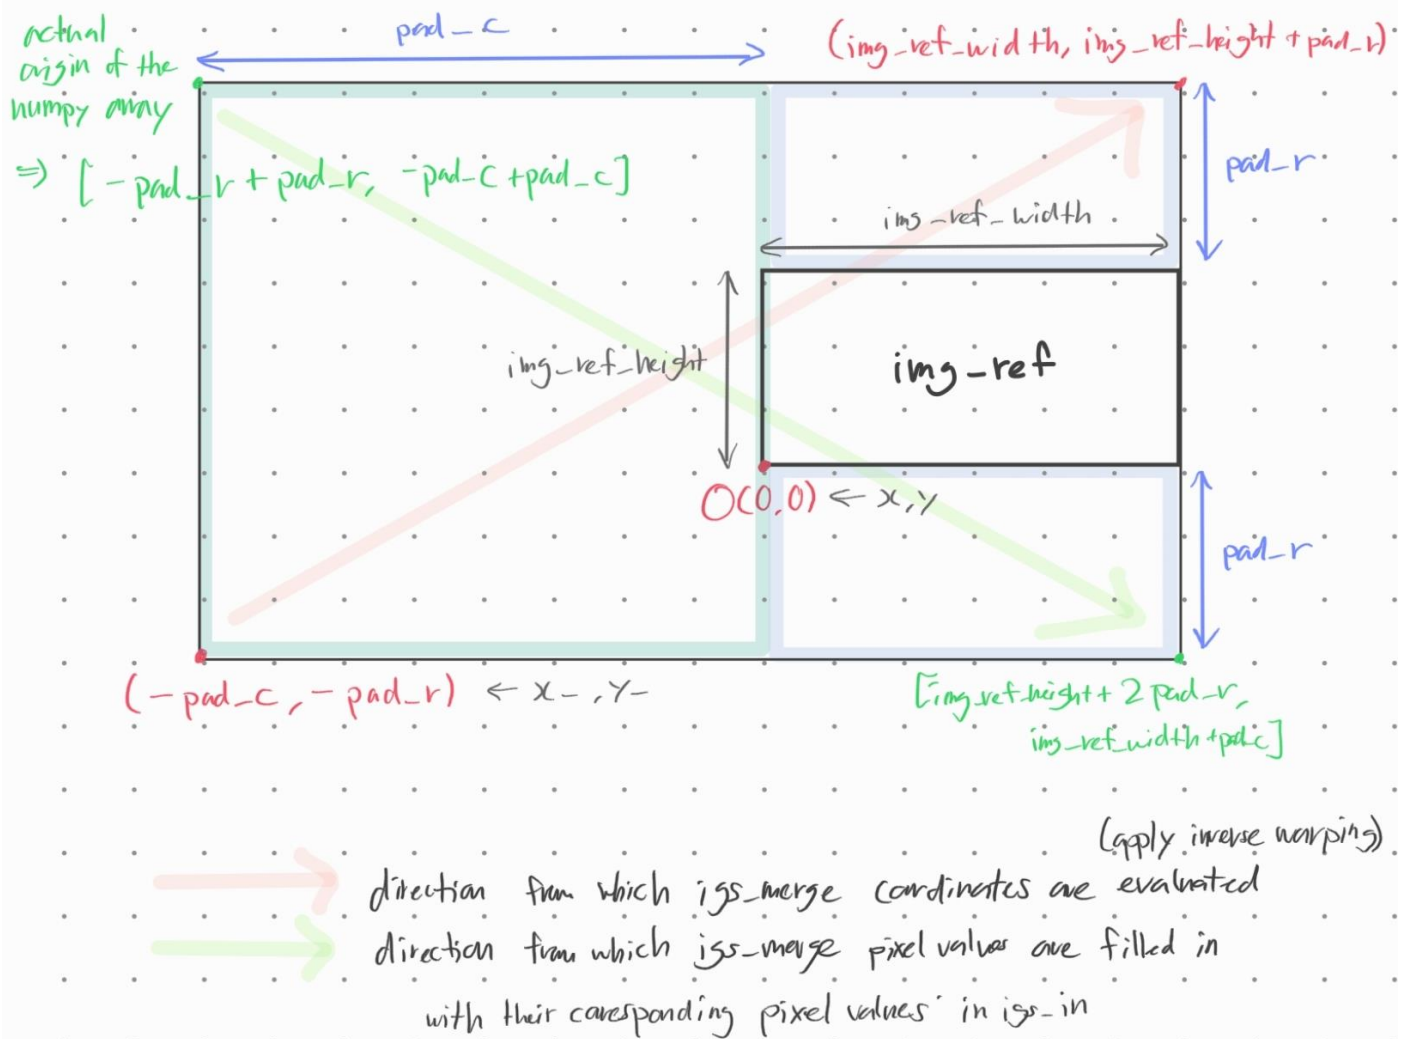 actual
origin of the
numpy array
⇒ [-pad_r + pad_r, -pad_c + pad_c]
pad_c
(img_ref_width, img_ref_height + pad_r)
pad_r
img_ref_width
img_ref_height
img_ref
O(0,0) ← x, y
pad_r
(-pad_c, -pad_r) ← x_, y_
[img_ref_height + 2 pad_r,
img_ref_width + pad_c]
(apply inverse warping)
direction from which igs_merge coordinates are evaluated
direction from which igs_merge pixel values are filled in
with their corresponding pixel values in igs_in